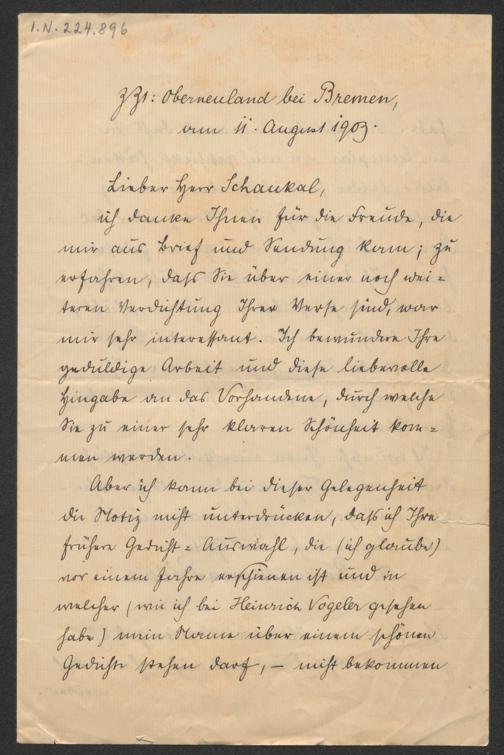 I.N. 224.896
z Zt: Oberneuland bei Bremen,
am 11. August 1903.
Lieber Herr Schaukal,
ich danke Ihnen für die Freude, die
mir aus Brief und Sendung kam; zu
erfahren, dass Sie über einer noch wei=
teren Verdichtung Ihrer Verse sind, war
mir sehr interessant. Ich bewundere Ihre
geduldige Arbeit und diese liebevolle
Hingabe an das Vorhandene, durch welche
Sie zu einer sehr klaren Schönheit kom=
men werden.
Aber ich kann bei dieser Gelegenheit
die Notiz nicht unterdrücken, dass ich Ihre
frühere Gedicht=Auswahl, die (ich glaube)
vor einem Jahre erschienen ist und in
welcher (wie ich bei Heinrich Vogeler gesehen
habe) mein Name über einem schönen
Gedichte stehen darf, – nicht bekommen